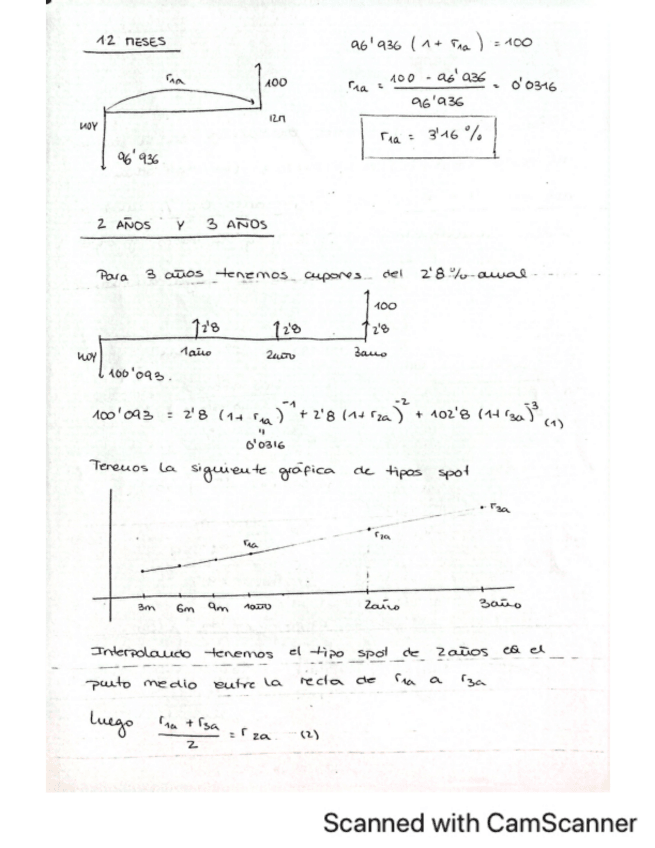 12 MESES
96'936 (1 + r1a) = 100
r1a
100
r1a = 100 - 96'936 / 96'936 = 0'0316
HOY
12m
96'936
r1a = 3'16 %
2 AÑOS Y 3 AÑOS
Para 3 años tenemos cupones del 2'8% anual
100
2'8
2'8
2'8
HOY
1año
2año
3año
100'093.
100'093 = 2'8 (1+ r1a)^-1 + 2'8 (1+ r2a)^-2 + 102'8 (1+ r3a)^-3 (1)
"
0'0316
Tenemos la siguiente gráfica de tipos spot
r3a
r1a
r2a
3m 6m 9m 1año 2año 3año
Interpolando tenemos el tipo spot de 2años en el
punto medio entre la recta de r1a a r3a
Luego r1a + r3a / 2 = r2a (2)
Scanned with CamScanner